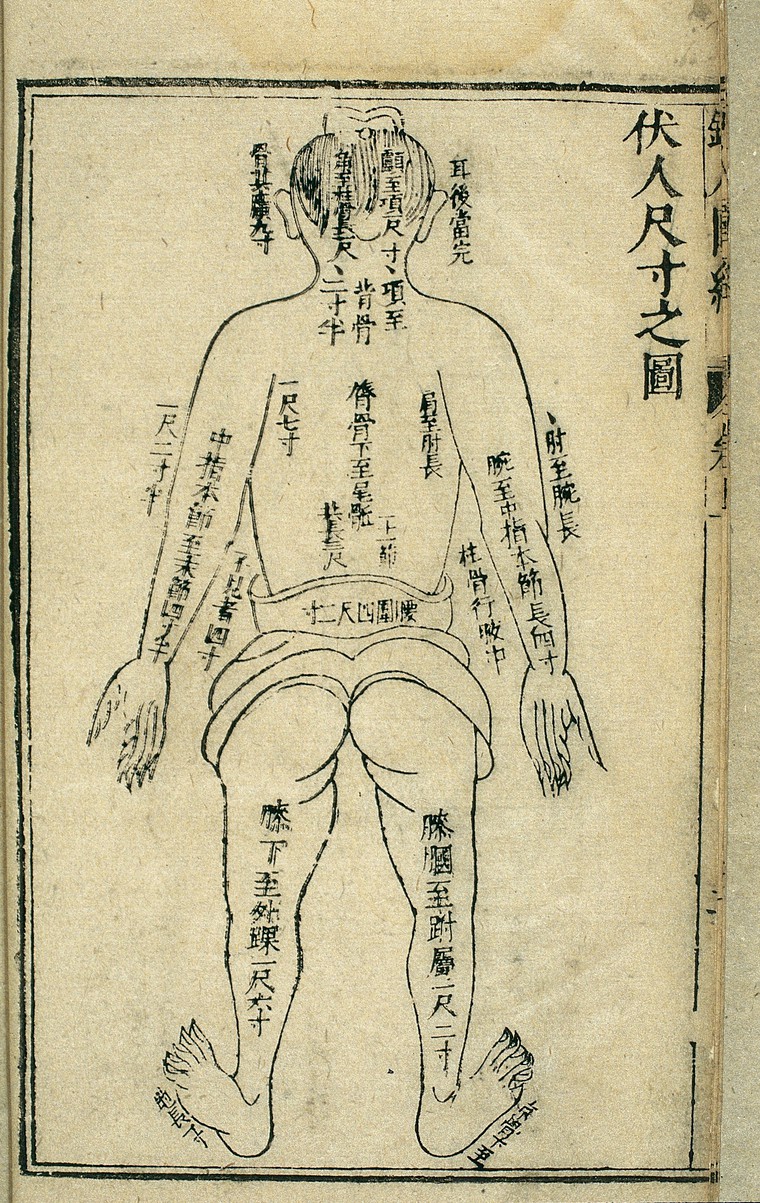 伏人尺寸之圖
耳後當完
骨其廣九寸
顱至項尺寸、項至
背骨
二寸半
角至柱骨長一尺、
肩至肘長
一尺七寸
膂骨下至尾骶
上一節
長三尺
肘至腕長
一尺二寸半
腕至中指本節長四寸
中指本節至末節四寸半
柱骨行腋中
不見者四寸
腰圍四尺二寸
膝膕至跗屬一尺二寸
膝下至外踝一尺六寸